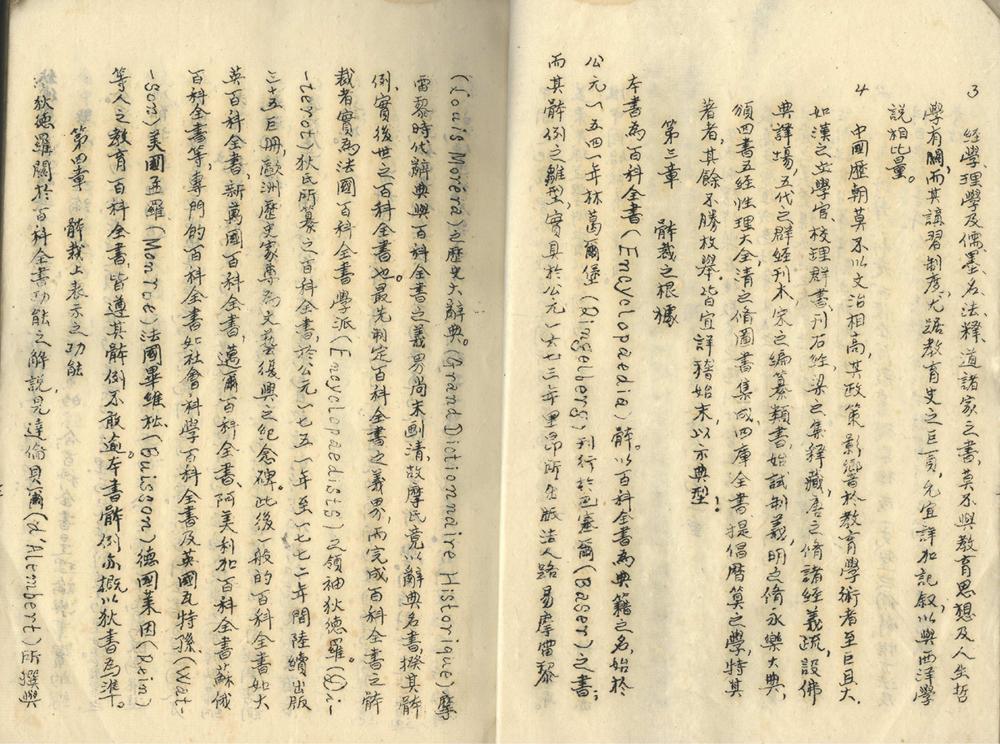 3 經學、理學及儒、墨、名、法、釋、道諸家之書,莫不與教育思想及人生哲
學有關,而其講習制度尤踞教育史之巨頁,允宜詳加記叙,以與西洋學
說相比量。
4 中國歷朝莫不以文治相高,其政策影響於教育學術者至巨且大.
如漢之立學官、校理群書、刊石經,梁之集釋藏,唐之脩諸經義疏,設佛
典譯場,五代之群經刊本,宋之編纂類書,始試制義,明之脩永樂大典,
頒四書五經性理大全,清之脩圖書集成、四庫全書,提倡曆算之學,特其
著者,其餘不勝枚舉.皆宜詳稽始末,以示典型!
第三章 體裁之根據
本書為百科全書(Encyclopaedia)體。以百科全書為典籍之名,始於
公元一五四一年林葛爾堡(Ringelberg)刊行於巴塞爾(Baser)之書;
而其體例之雛型,實具於公元一六七三年里昂所出版法人路易摩雷黎
(Louis Moréra)之歷史大辭典。(Grand Dictionnaire Historique)摩
雷黎時代辭典與百科全書之義界尚未劃清,故摩氏竟以辭典名書,揆其體
例,實後世之百科全書也。最先制定百科全書之義界,而完成百科全書之體
裁者,實為法國百科全書學派(Encyclopaedists)之領袖狄德羅。(Di-
-terot)狄氏所纂之百科全書,於公元一七五一年至一七七二年間陸續出版
三十五巨冊,歐洲歷史家尊為文藝復興之紀念碑。此後一般的百科全書如大
英百科全書、新萬國百科全書、邁爾百科全書、阿美利加百科全書、蘇俄
百科全書等,專門的百科全書如社會科學百科全書及英國瓦特孫(Wat-
-son)美國孟羅(Monroe)法國畢維松(Buisson)德國萊因(Rein)
等人之教育百科全書,皆遵其體例不敢逾。本書體例亦概以狄書為準。
第四章 體裁上表示之功能
狄德羅關於百科全書功能之解說,見達倫貝爾(d'Alembert)所撰與